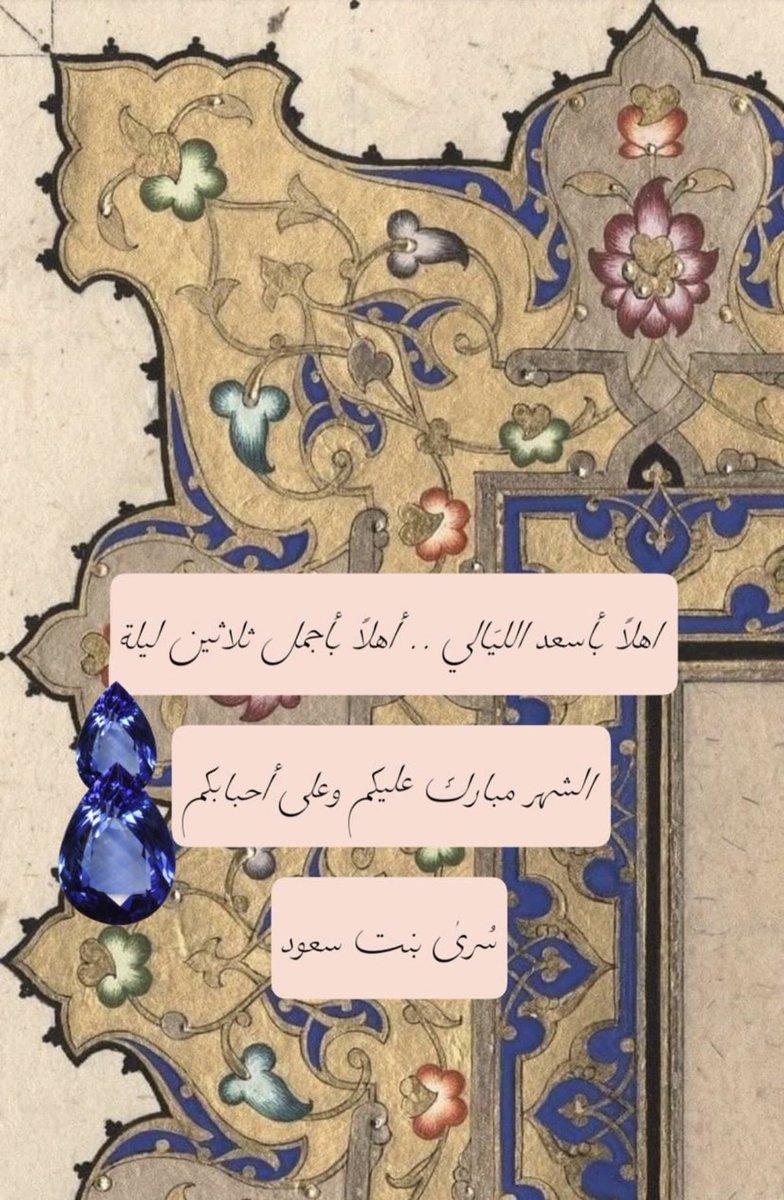 اهلاً بأسعد الليَالي .. أهلاً بأجمل ثلاثين ليلة
الشهر مبارك عليكم وعلى أحبابكم
سُرىٰ بنت سعود